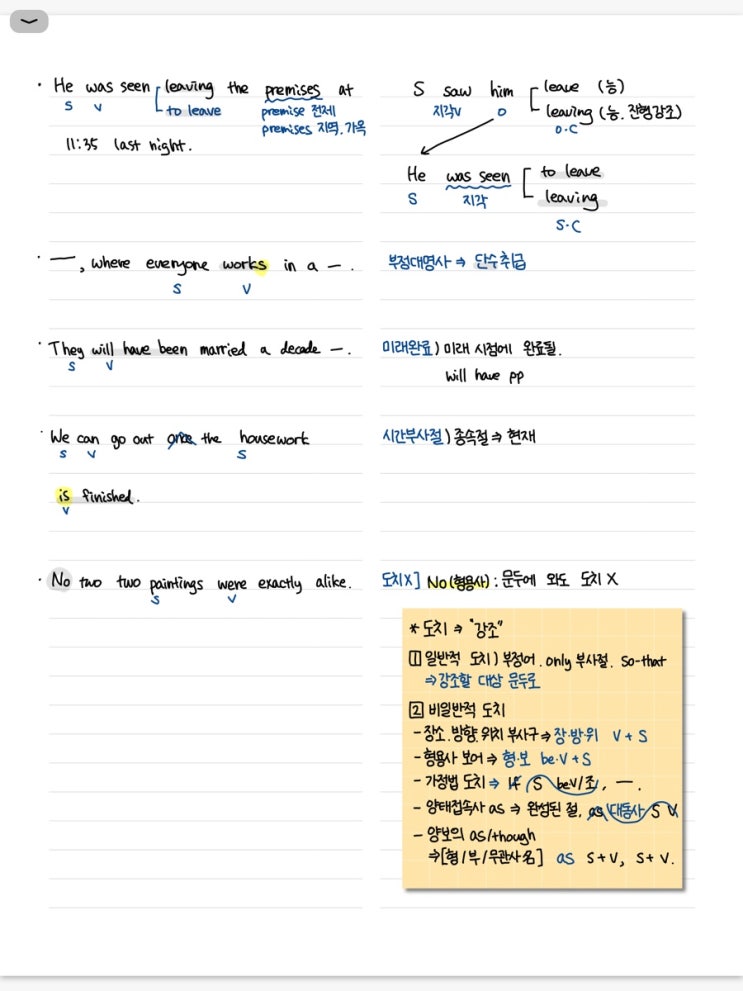 · He was seen leaving the premises at
S V to leave premise 전제
premises 지역, 가옥
11:35 last night.
S saw him leave (능)
지각V O leaving (능, 진행강조)
O·C
He was seen to leave
S 지각 leaving
S·C
· ㅡ, where everyone works in a ㅡ.
S V
부정대명사 ⇒ 단수취급
· They will have been married a decade ㅡ.
S V
미래완료) 미래 시점에 완료될.
will have pp
· We can go out once the housework
S V S
is finished.
V
시간부사절) 종속절 ⇒ 현재
· No two two paintings were exactly alike.
S V
도치X] No(형용사) : 문두에 와도 도치 X
* 도치 ⇒ "강조"
1 일반적 도치) 부정어. only 부사절. so-that
⇒ 강조할 대상 문두로
2 비일반적 도치
- 장소.방향.위치 부사구 ⇒ 장·방·위 V + S
- 형용사 보어 ⇒ 형·보 be·V + S
- 가정법 도치 ⇒ If S beV/조, ㅡ.
- 양태접속사 as ⇒ 완성된 절, as 대동사 S V
- 양보의 as/though
⇒ [형/부/무관사名] as S + V, S + V.